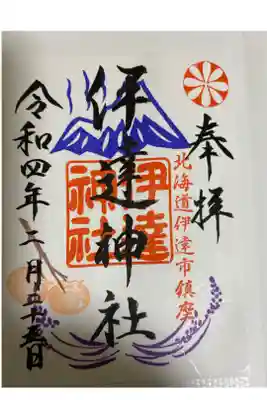 奉拝
北海道伊達市鎮座
伊達神社
伊達
神社
令和四年二月